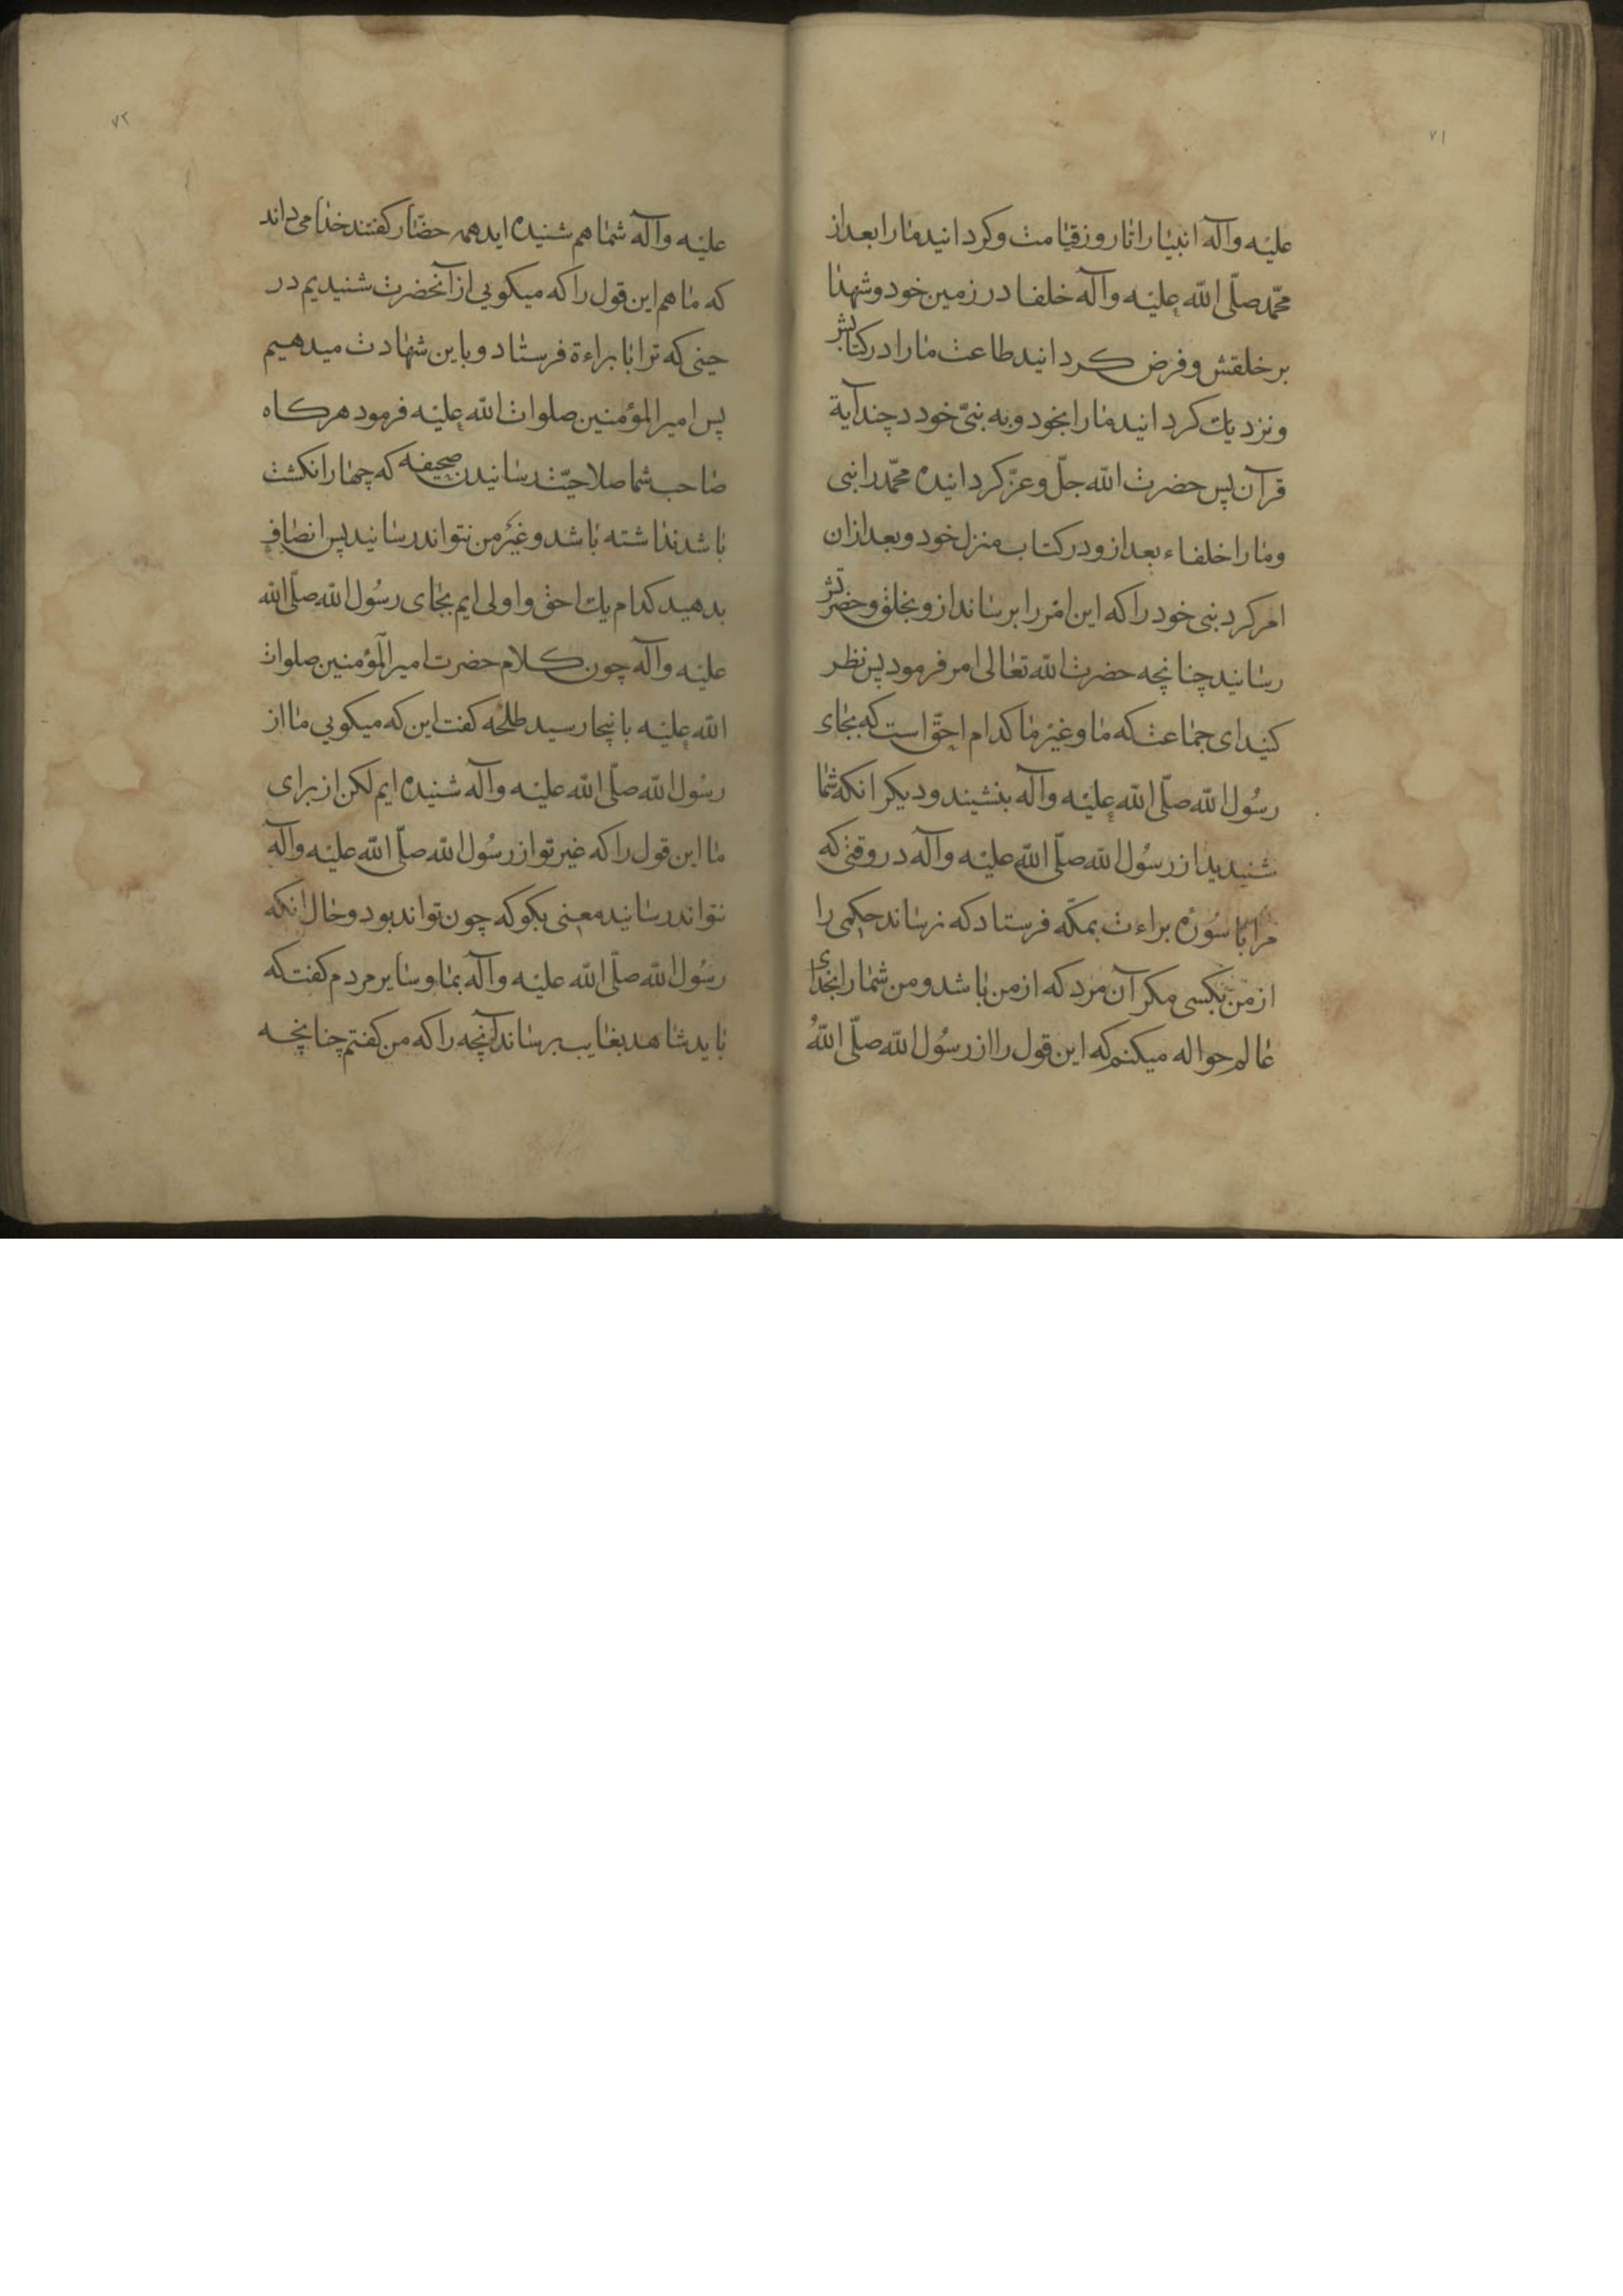 ۷۱
علیه وآله انبیا را تا روز قیامت وکردانید ما را بعد از
محمّد صلّی الله علیه وآله خلفا در زمین خود وشهدا
بر خلقش و فرض کردانید طاعت ما را در کتابش
ونزدیك کردانید ما را بخود و به نبیّ خود در چند آیة
قرآن پس حضرت الله جلّ وعزّ کردانیده محمّد را نبی
وما را خلفاء بعد از و در کتاب منزل خود و بعد از ان
امر کرد نبی خود را که این امر را برساند از و بخلق وحضرتش
رسانید چنانچه حضرت الله تعالی امر فرمود پس نظر
کنید ای جماعت که ما وغیر ما کدام احقّ است که بجای
رسُول الله صلّی الله علیه وآله بنشیند و دیکر انکه شما
شنیدید از رسُول الله صلّی الله علیه وآله در وقتی که
مرا با سُورهٔ براءت بمکّه فرستاد که نرساند حکمی را
از من بکسی مکر آن مرد که از من باشد و من شما را بخدای
عالم حواله میکنم که این قول را از رسُول الله صلّی اللهُ
۷۲
علیه وآله شما هم شنیده اید همه حضّار کفتند خدا می داند
که ما هم این قول را که میکویی از آنحضرت شنیدیم در
حینی که ترا با براءة فرستاد و باین شهادت میدهیم
پس امیر المؤمنین صلوات الله علیه فرمود هرکاه
صاحب شما صلاحیّت رسانیدن صحیفه که چهار انکشت
باشد نداشته باشد و غیر من نتواند رسانید پس انصاف
بدهید کدام یك احق و اولی ایم بجای رسُول الله صلّی الله
علیه وآله چون کلام حضرت امیر المؤمنین صلوات
الله علیه بانیجا رسید طلحه کفت این که میکویی ما از
رسُول الله صلّی الله علیه وآله شنیده ایم لکن از برای
ما این قول را که غیر تو از رسُول الله صلّی الله علیه وآله
نتواند رسانید معنی بکو که چون تواند بود وحال انکه
رسُول الله صلّی الله علیه وآله بما و سایر مردم کفت که
باید شاهد بغایب برساند آنچه را که من کفتم چنانچه